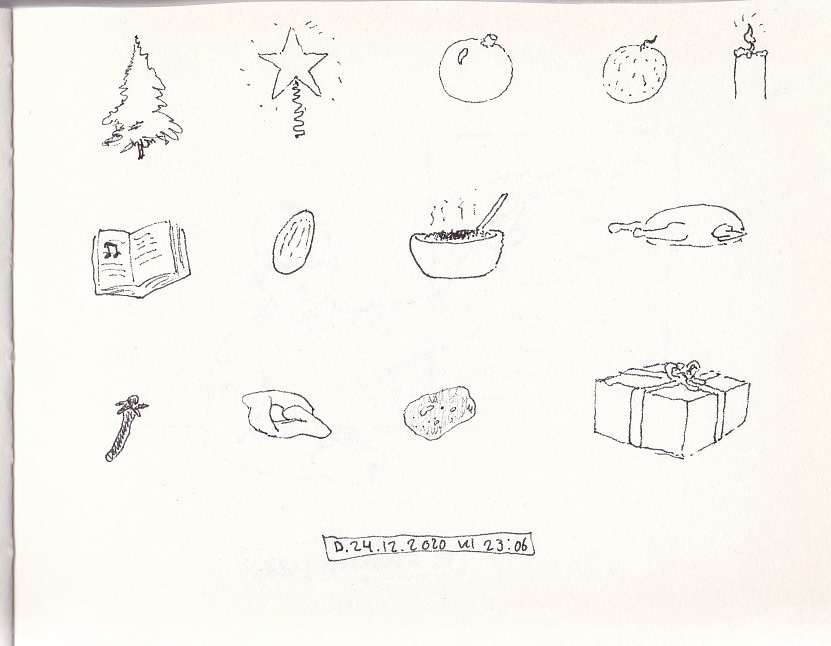 D.24.12.2020 kl 23:06